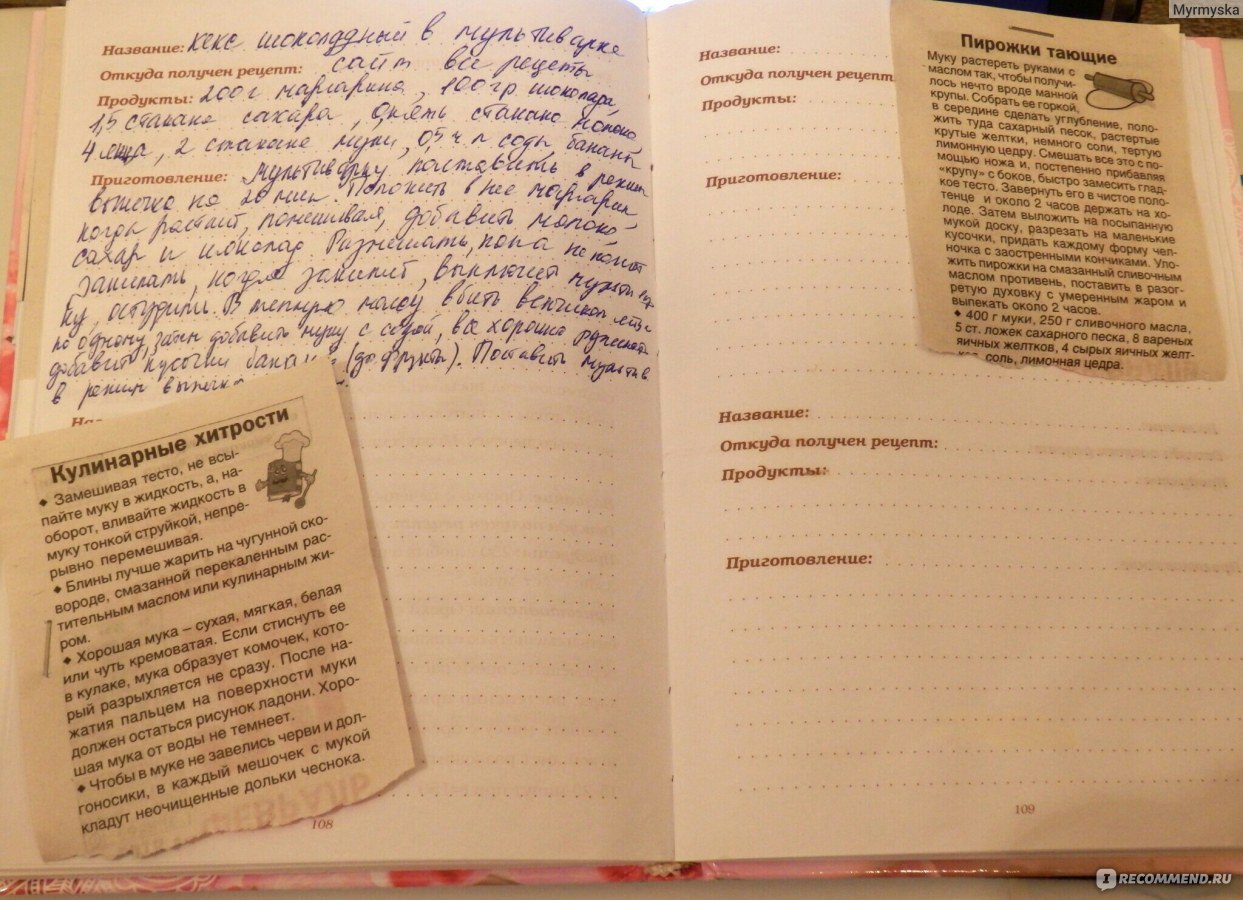 Myrmyska
Название: кекс шоколадный в мультиварке
Откуда получен рецепт: сайт все рецепты
Продукты: 200 г маргарина, 100 гр шоколада,
1,5 стакана сахара, стакана молока
4 яйца, 2 стакана муки, 0,5 ч л соды, бананы
Приготовление: Мультиварку поставить в режим
выпечка на 20 мин. Положить в нее маргарин
когда растает, помешивая, добавить молоко,
сахар и шоколад. Размешать, пока не начнет
закипать, когда закипит, выключить мультивар
ку, остудить. В теплую массу вбить венчиком яйца
по одному, затем добавить муку с содой, все хорошо
добавить кусочки (др фрукты). Поставить мультив
в режим выпечка
На
Кулинарные хитрости
♦ Замешивая тесто, не всы-
пайте муку в жидкость, а, на-
оборот, вливайте жидкость в
муку тонкой струйкой, непре-
рывно перемешивая.
♦ Блины лучше жарить на чугунной ско-
вороде, смазанной перекаленным рас-
тительным маслом или кулинарным жи-
ром.
♦ Хорошая мука – сухая, мягкая, белая
или чуть кремоватая. Если стиснуть ее
в кулаке, мука образует комочек, кото-
рый разрыхляется не сразу. После на-
жатия пальцем на поверхности муки
должен остаться рисунок ладони. Хоро-
шая мука от воды не темнеет.
♦ Чтобы в муке не завелись черви и дол-
гоносики, в каждый мешочек с мукой
кладут неочищенные дольки чеснока.
ФЕВРАЛЬ
108
Название:
Откуда получен рецепт
Продукты:
Приготовление:
Пирожки тающие
Муку растереть руками с
маслом так, чтобы получи-
лось нечто вроде манной
крупы. Собрать ее горкой,
в середине сделать углубление, поло-
жить туда сахарный песок, растертые
крутые желтки, немного соли, тертую
лимонную цедру. Смешать все это с по-
мощью ножа и, постепенно прибавляя
«крупу» с боков, быстро замесить глад-
кое тесто. Завернуть его в чистое поло-
тенце и около 2 часов держать на хо-
лоде. Затем выложить на посыпанную
мукой доску, разрезать на маленькие
кусочки, придать каждому форму чел-
ночка с заостренными кончиками. Уло-
жить пирожки на смазанный сливочным
маслом противень, поставить в разог-
ретую духовку с умеренным жаром и
выпекать около 2 часов.
♦ 400 г муки, 250 г сливочного масла,
5 ст. ложек сахарного песка, 8 вареных
яичных желтков, 4 сырых яичных желт-
ка, соль, лимонная цедра.
Название:
Откуда получен рецепт:
Продукты:
Приготовление:
109
IRECOMMEND.RU